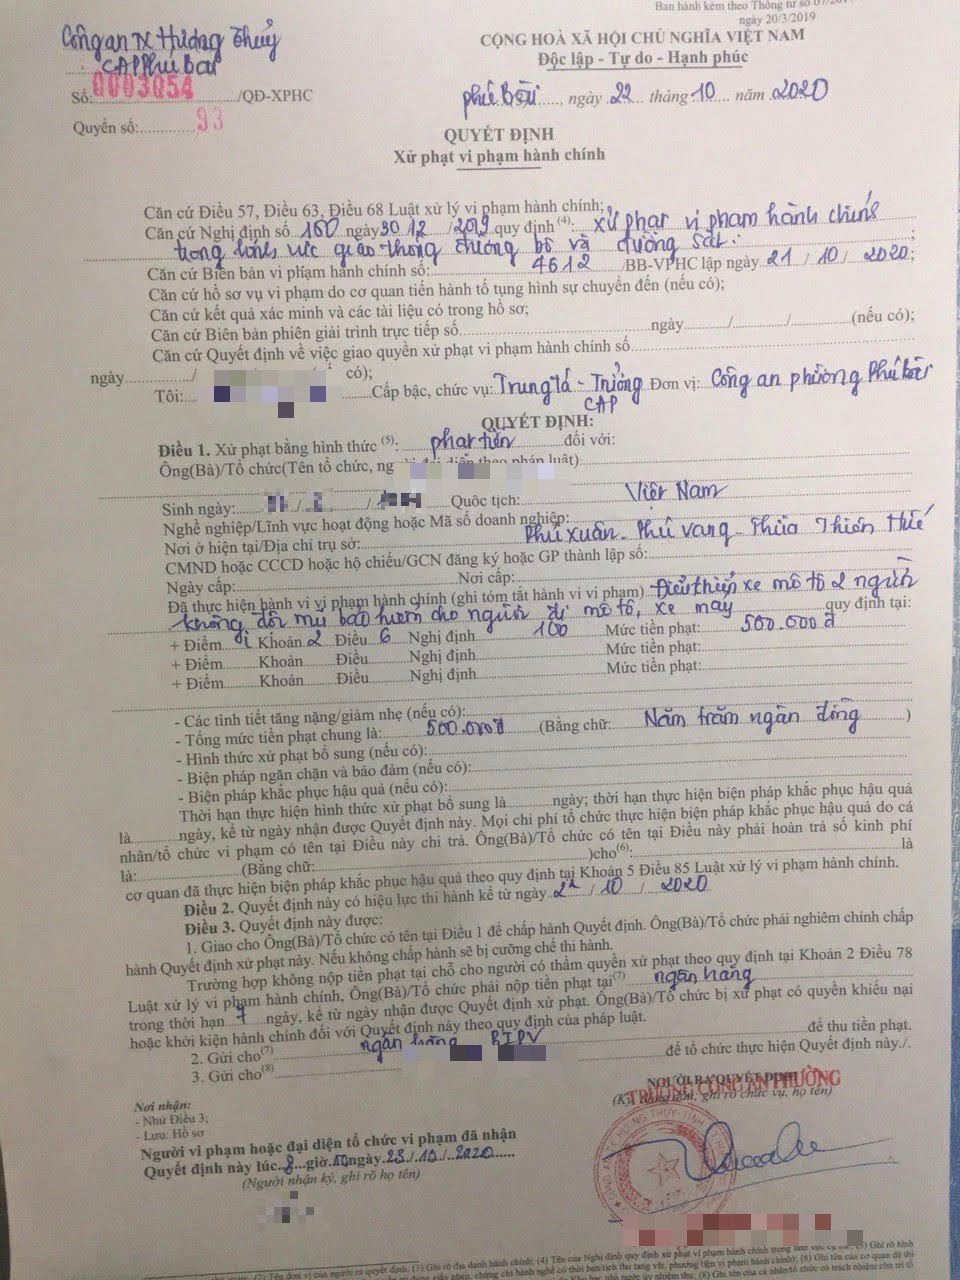 Ban hành kèm theo Thông tư số 07/
ngày 20/3/2019
Công an TX Hương Thủy
CAP Phú Bài
CỘNG HOÀ XÃ HỘI CHỦ NGHĨA VIỆT NAM
Độc lập - Tự do - Hạnh phúc
Số: 0003054 /QĐ-XPHC
Phú Bài, ngày 22 tháng 10 năm 2020
Quyển số: 93
QUYẾT ĐỊNH
Xử phạt vi phạm hành chính
Căn cứ Điều 57, Điều 63, Điều 68 Luật xử lý vi phạm hành chính;
Căn cứ Nghị định số 100 ngày 30/12/2019 quy định (4): xử phạt vi phạm hành chính
trong lĩnh vực giao thông đường bộ và đường sắt;
Căn cứ Biên bản vi phạm hành chính số: 4612 /BB-VPHC lập ngày 21/10/2020;
Căn cứ hồ sơ vụ vi phạm do cơ quan tiến hành tố tụng hình sự chuyển đến (nếu có);
Căn cứ kết quả xác minh và các tài liệu có trong hồ sơ;
Căn cứ Biên bản phiên giải trình trực tiếp số ngày / / (nếu có);
Căn cứ Quyết định về việc giao quyền xử phạt vi phạm hành chính số
ngày / có);
Tôi: Cấp bậc, chức vụ: Trung tá - Trưởng CAP Đơn vị: Công an phường Phú Bài
QUYẾT ĐỊNH:
Điều 1. Xử phạt bằng hình thức (5): phạt tiền đối với:
Ông(Bà)/Tổ chức(Tên tổ chức, ng đại diện theo pháp luật):
Sinh ngày: / / Quốc tịch: Việt Nam
Nghề nghiệp/Lĩnh vực hoạt động hoặc Mã số doanh nghiệp:
Nơi ở hiện tại/Địa chỉ trụ sở: Phú Xuân - Phú Vang - Thừa Thiên Huế
CMND hoặc CCCD hoặc hộ chiếu/GCN đăng ký hoặc GP thành lập số:
Ngày cấp: Nơi cấp:
Đã thực hiện hành vi vi phạm hành chính (ghi tóm tắt hành vi vi phạm) Điều khiển xe mô tô 2 người
không đội mũ bảo hiểm cho người đi mô tô, xe máy quy định tại:
+ Điểm i Khoản 2 Điều 6 Nghị định 100 Mức tiền phạt: 500.000đ
+ Điểm Khoản Điều Nghị định Mức tiền phạt:
+ Điểm Khoản Điều Nghị định Mức tiền phạt:
- Các tình tiết tăng nặng/giảm nhẹ (nếu có):
- Tổng mức tiền phạt chung là: 500.000đ (Bằng chữ: Năm trăm ngàn đồng )
- Hình thức xử phạt bổ sung (nếu có):
- Biện pháp ngăn chặn và bảo đảm (nếu có):
- Biện pháp khắc phục hậu quả (nếu có):
Thời hạn thực hiện hình thức xử phạt bổ sung là ngày; thời hạn thực hiện biện pháp khắc phục hậu quả
là ngày, kể từ ngày nhận được Quyết định này. Mọi chi phí tổ chức thực hiện biện pháp khắc phục hậu quả do cá
nhân/tổ chức vi phạm có tên tại Điều này chi trả. Ông(Bà)/Tổ chức có tên tại Điều này phải hoàn trả số kinh phí
là: (Bằng chữ: )cho(6): là
cơ quan đã thực hiện biện pháp khắc phục hậu quả theo quy định tại Khoản 5 Điều 85 Luật xử lý vi phạm hành chính.
Điều 2. Quyết định này có hiệu lực thi hành kể từ ngày 22/10/2020
Điều 3. Quyết định này được:
1. Giao cho Ông(Bà)/Tổ chức có tên tại Điều 1 để chấp hành Quyết định. Ông(Bà)/Tổ chức phải nghiêm chỉnh chấp
hành Quyết định xử phạt này. Nếu không chấp hành sẽ bị cưỡng chế thi hành.
Trường hợp không nộp tiền phạt tại chỗ cho người có thẩm quyền xử phạt theo quy định tại Khoản 2 Điều 78
Luật xử lý vi phạm hành chính, Ông(Bà)/Tổ chức phải nộp tiền phạt tại(7) ngân hàng
trong thời hạn 7 ngày, kể từ ngày nhận được Quyết định xử phạt. Ông(Bà)/Tổ chức bị xử phạt có quyền khiếu nại
hoặc khởi kiện hành chính đối với Quyết định này theo quy định của pháp luật.
2. Gửi cho(7) ngân hàng BIDV để thu tiền phạt.
3. Gửi cho(8) để tổ chức thực hiện Quyết định này./.
Nơi nhận:
- Như Điều 3;
- Lưu: Hồ sơ
NGƯỜI RA QUYẾT ĐỊNH
(Ký, đóng dấu, ghi rõ chức vụ, họ tên)
TRƯỞNG CÔNG AN PHƯỜNG
Người vi phạm hoặc đại diện tổ chức vi phạm đã nhận
Quyết định này lúc 8 giờ 50 ngày 23/10/2020
(Người nhận ký, ghi rõ họ tên)